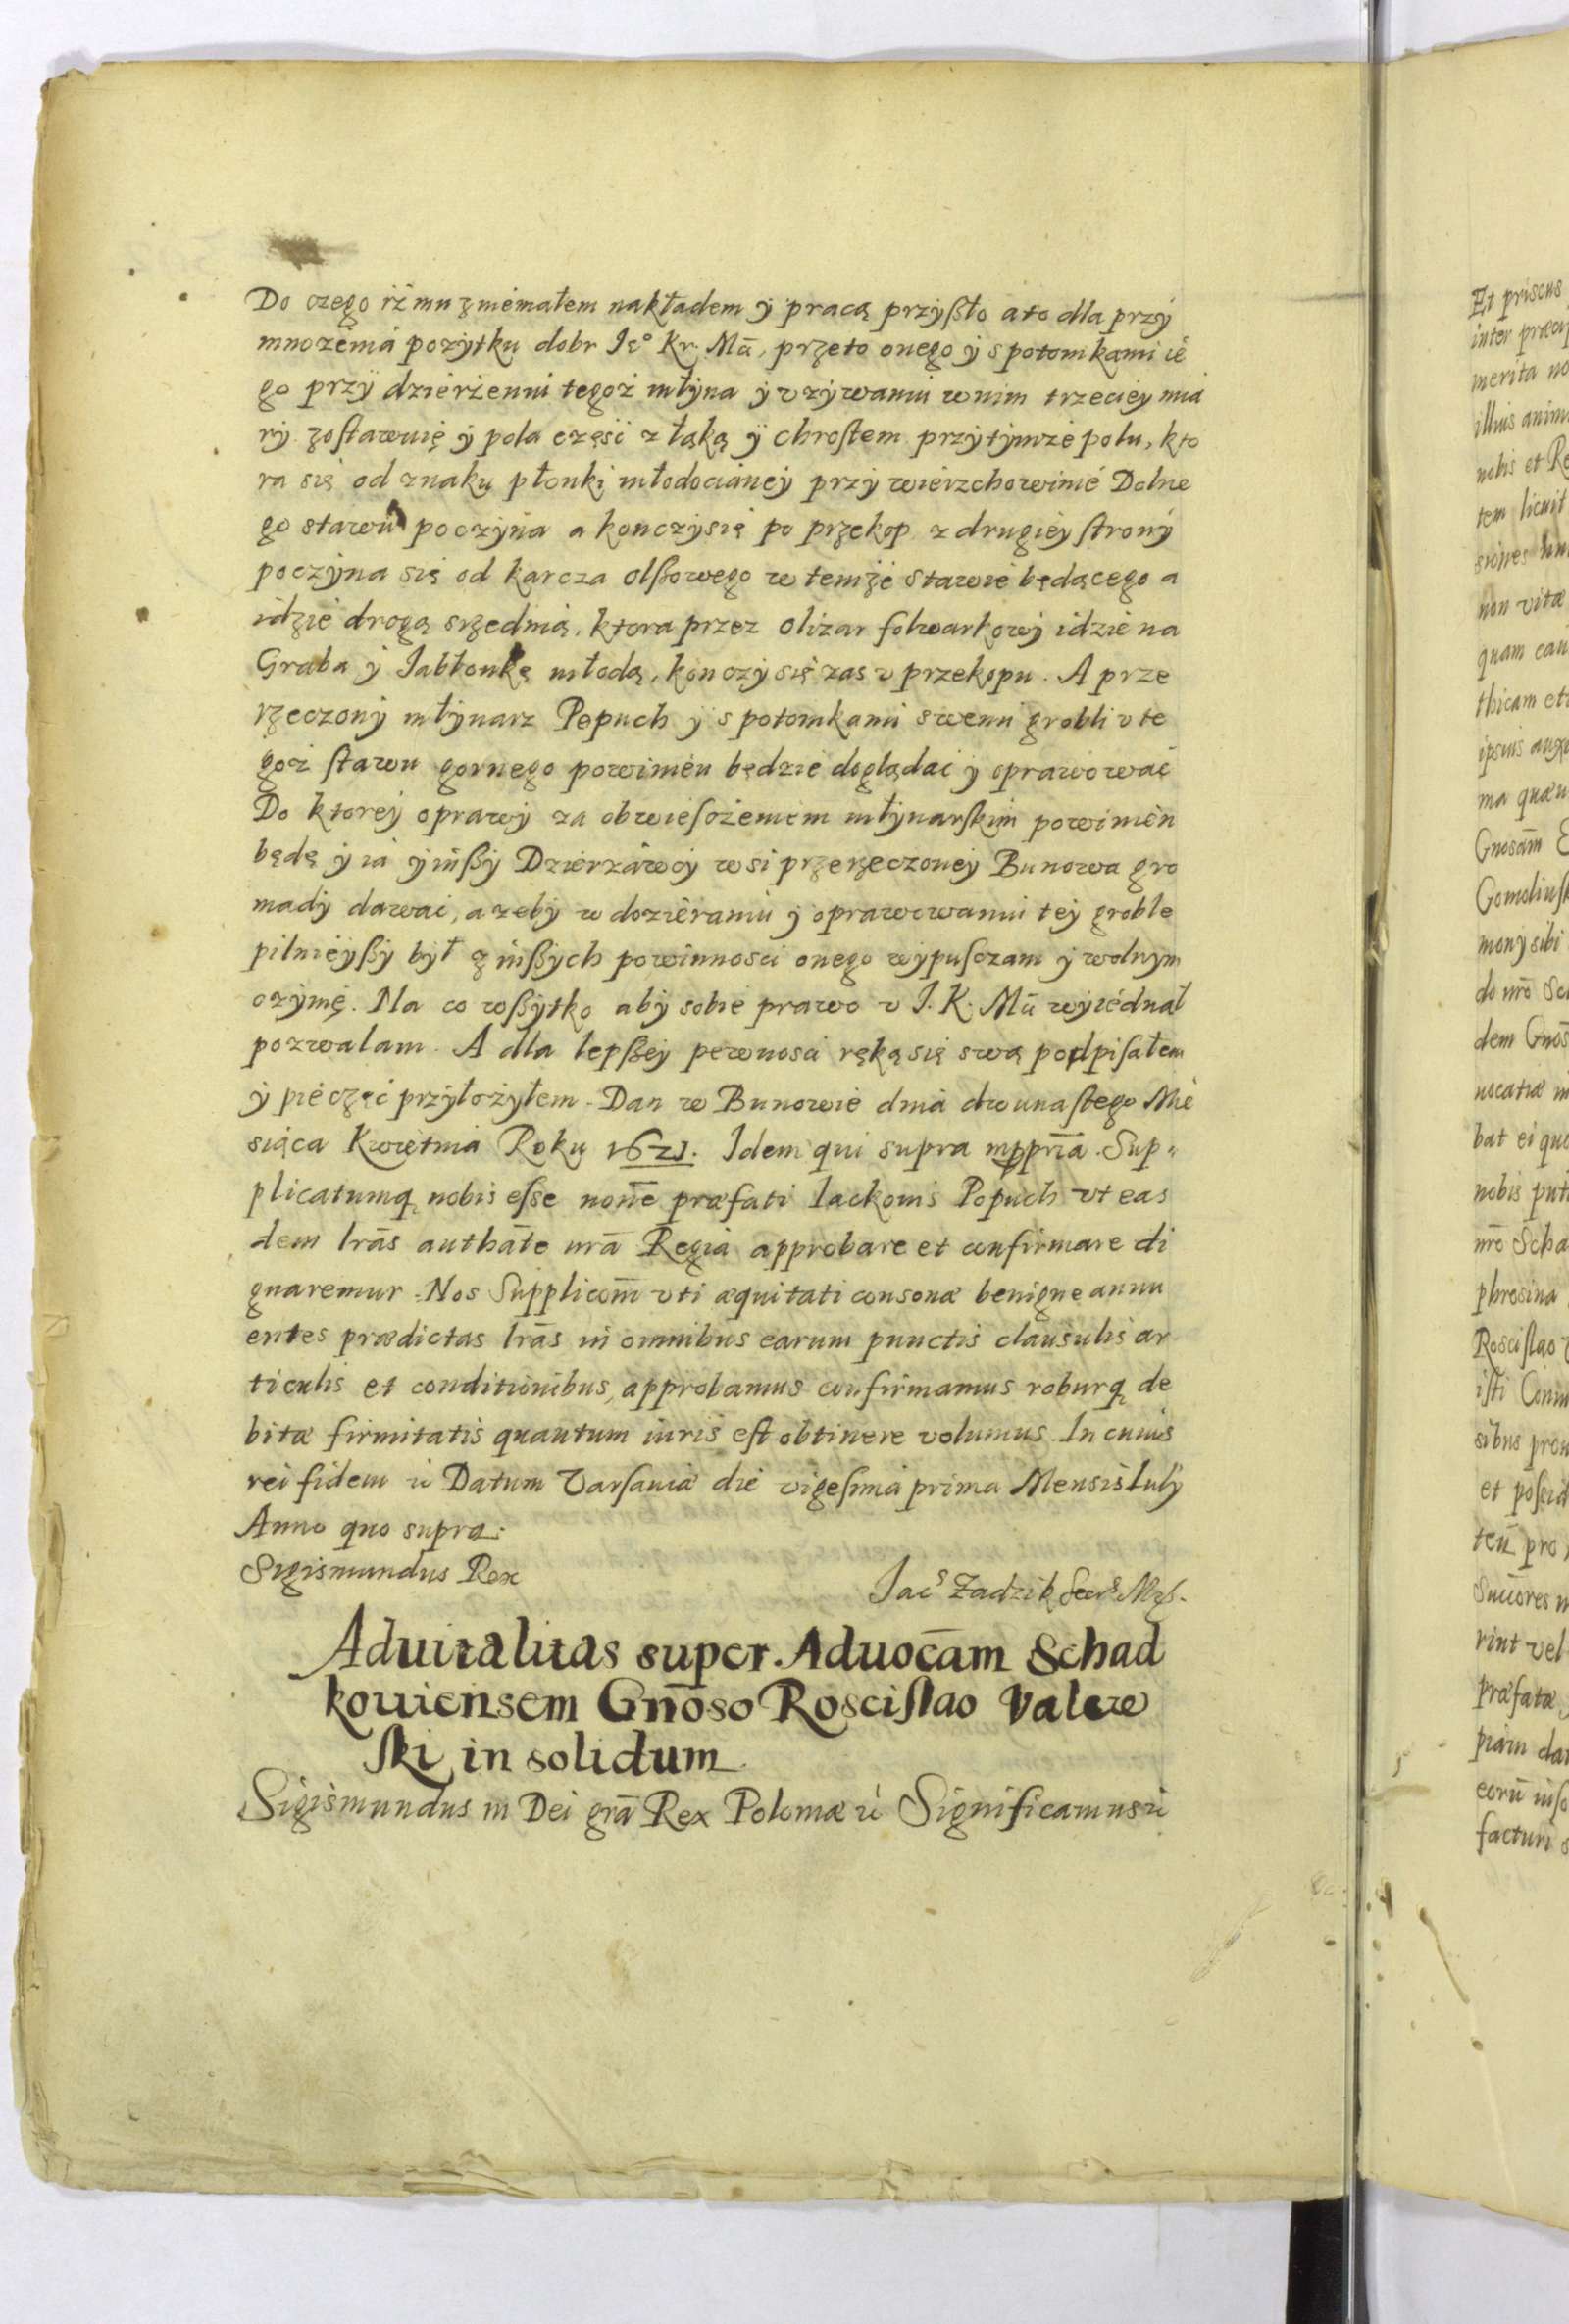 Do czego iż mu z niemałem nakładem ÿ pracą przyßło a to dla przÿ
mnożenia pożytku dobr Ieº Kr. Mći, przeto onego ÿ s potomkami ie
go przÿ dzierżeniu tegoż młÿna ÿ vżÿwaniu w nim trzecieÿ mia
rÿ zostawuię ÿ pola część z łąką ÿ chrostem przÿ tÿmże polu, kto
ra się od znaku płonki młodocianeÿ przÿ wierzchowinie Dolne
go stawu poczÿna a konczÿ się po przekop z drugieÿ stronÿ
poczÿna się od karcza olßowego w temże stawie będącego a
idzie drogą srzednią, ktora przez olizar folwarkowÿ idzie na
Graba ÿ Iabłonkę młodą, konczÿ się zas v przekopu. A prze
rzeczonÿ młÿnarz Popuch ÿ s potomkami swemi grobli v te
goż stawu gornego powinien będzie doglądać ÿ oprawować
Do ktoreÿ oprawÿ za obwiesczeniem młÿnarskim powinien
będę ÿ ia ÿ inßÿ Dzierżawcÿ wsi przerzeczoneÿ Bunowa gro
madÿ dawać, a żebÿ w dozieraniu ÿ oprawowaniu teÿ groble
pilnieÿßÿ bÿł z inßÿch powinnosci onego wÿpusczam ÿ wolnÿm
czÿnię. Na co wßÿtko abÿ sobie prawo v I. K. Mći wÿiednał
pozwalam. A dla lepßeÿ pewnosci ręką się swą podpisałem
ÿ pieczęć przÿłożÿłem. Dan w Bunowie dnia dwunastego Mie
siąca Kwietnia Roku 1621. Idem qui supra mppria. Sup=
plicatumq nobis esse noñe præfati Iackonis Popuch vt eas
dem lrās authāte nrā Regia approbare et confirmare di
gnaremur. Nos Supplicōni vti æquitati consonæ benigne annu
entes prædictas lrās in omnibus earum punctis clausulis ar
ticulis et conditionibus, approbamus confirmamus roburq de
bitæ firmitatis quantum iuris est obtinere volumus. In cuius
rei fidem ić Datum Varsaviæ die vigesima prima Mensis Iulÿ
Anno quo supra.
Sigismundus Rex
Iacs Zadzik Secrs Mgs.
Aduitalitas super Aduocām Schad
kouiensem Gnōso Roscislao Valew
ski in solidum
Sigismundus III Dei grā Rex Poloniæ ić Significamus ić
Et priscus
merita no
nobis et Re
tem licuit
non vitæ
quam cau
ma quæu
mony sibi
bat ei quo
nobis put
phrosina
præfatæ
facturi s